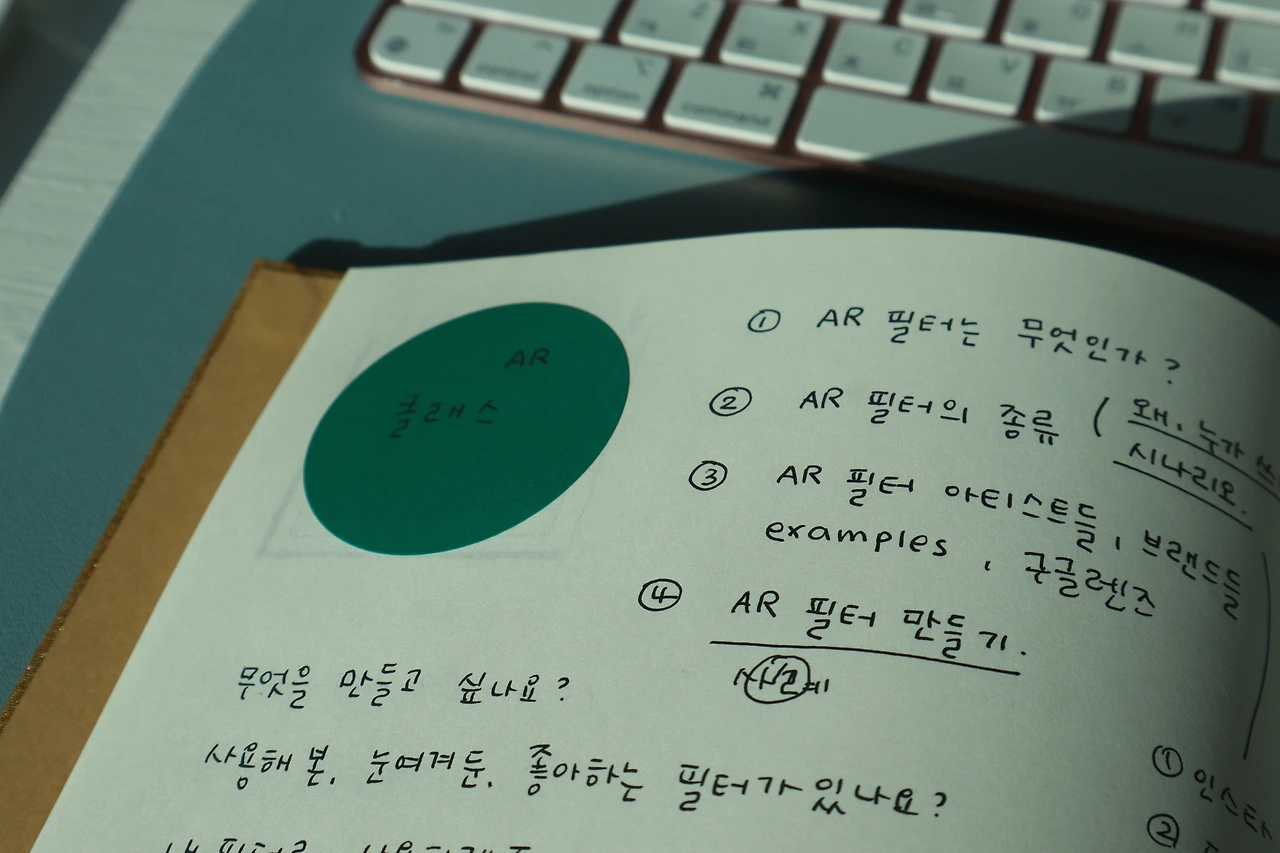 control
option
command
Z
X
C
V
B
AR
클래스
① AR 필터는 무엇인가?
② AR 필터의 종류 ( 왜, 누가
시나리오.
③ AR 필터 아티스트들, 브랜드들
examples, 구글렌즈
④ AR 필터 만들기.
무엇을 만들고 싶나요?
사용해 본, 눈여겨 둔, 좋아하는 필터가 있나요?
① 인스타
②